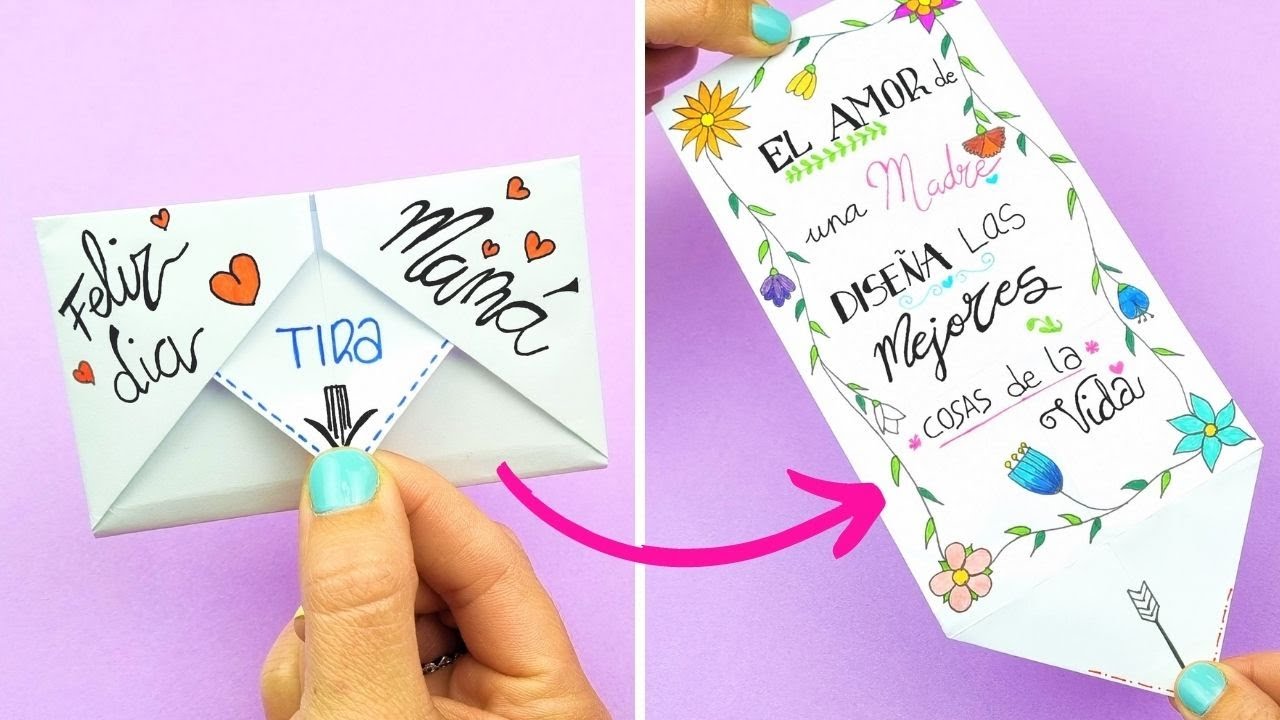 Feliz
día
Mamá
TIRA
EL AMOR de
una Madre
DISEÑA LAS
Mejores
COSAS de la
Vida